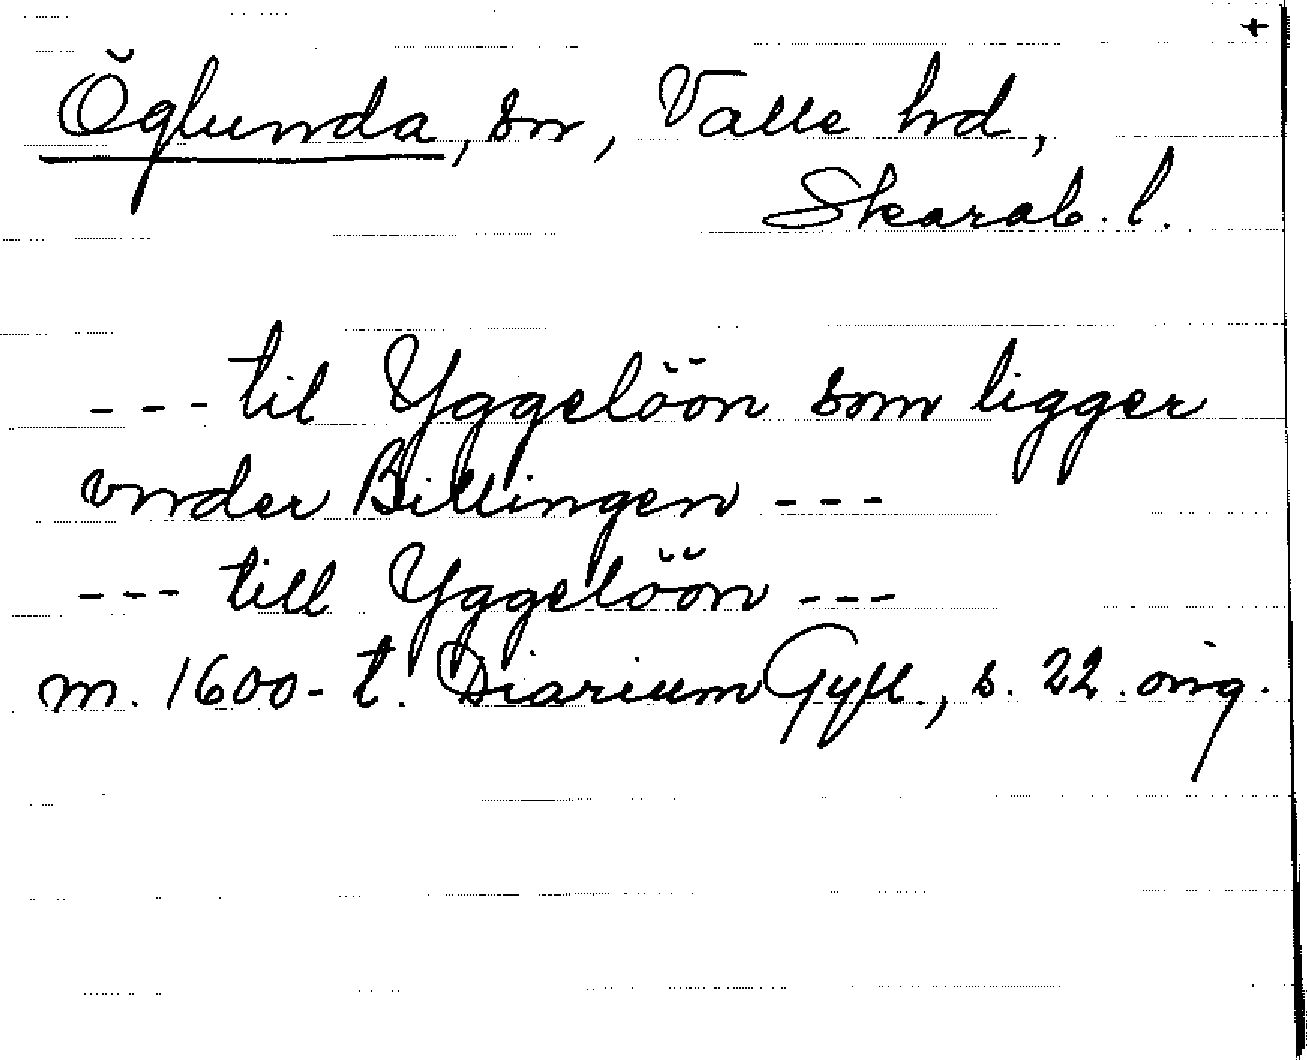 +
Öglunda, sn, Valle hd,
Skarab. l.
--- til Yggelöön som ligger
vnder Billingen ---
--- till Yggelöön ---
m. 1600-t. Diarium Gyll., s. 22 orig.